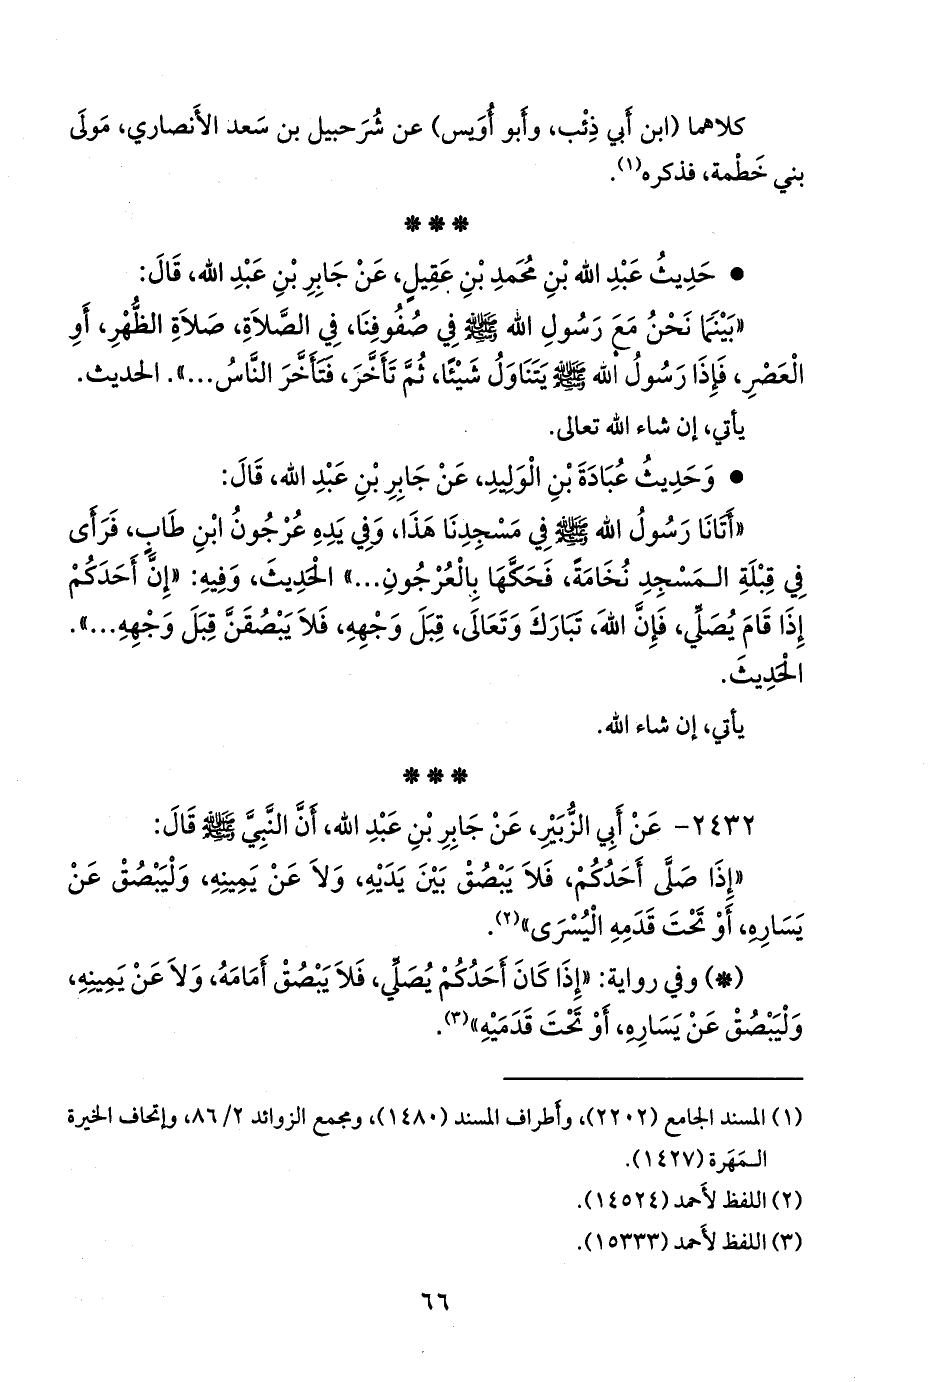 كلاهما (ابن أَبي ذِئْب، وأَبو أُوَيس) عن شُرَحبيل بن سَعد الأَنصاري، مَولَى
بني خَطْمة، فذكره(١).
* * *
● حَدِيثُ عَبْدِ الله بْنِ مُحَمدِ بْنِ عَقِيلٍ، عَنْ جَابِرِ بْنِ عَبْدِ الله، قَالَ:
«بَيْنَمَا نَحْنُ مَعَ رَسُولِ الله ﷺ فِي صُفُوفِنَا، فِي الصَّلاَةِ، صَلاَةِ الظُّهْرِ، أَوِ
الْعَصْرِ، فَإِذَا رَسُولُ الله ﷺ يَتَنَاوَلُ شَيْئًا، ثُمَّ تَأَخَّرَ، فَتَأَخَّرَ النَّاسُ...». الحديث.
يأتي، إن شاء الله تعالى.
● وَحَدِيثُ عُبَادَةَ بْنِ الْوَلِيدِ، عَنْ جَابِرِ بْنِ عَبْدِ الله، قَالَ:
«أَتَانَا رَسُولُ الله ﷺ فِي مَسْجِدِنَا هَذَا، وَفِي يَدِهِ عُرْجُونُ ابْنِ طَابٍ، فَرَأَى
فِي قِبْلَةِ الـمَسْجِدِ نُخَامَةً، فَحَكَّهَا بِالْعُرْجُونِ...» الْحَدِيثَ، وَفِيهِ: «إِنَّ أَحَدَكُمْ
إِذَا قَامَ يُصَلِّي، فَإِنَّ اللهَ، تَبَارَكَ وَتَعَالَى، قِبَلَ وَجْهِهِ، فَلاَ يَبْصُقَنَّ قِبَلَ وَجْهِهِ...».
الْحَدِيثَ.
يأتي، إن شاء الله.
* * *
٢٤٣٢- عَنْ أَبِي الزُّبَيْرِ، عَنْ جَابِرِ بْنِ عَبْدِ الله، أَنَّ النَّبِيَّ ﷺ قَالَ:
«إِذَا صَلَّى أَحَدُكُمْ، فَلاَ يَبْصُقْ بَيْنَ يَدَيْهِ، وَلاَ عَنْ يَمِينِهِ، وَلْيَبْصُقْ عَنْ
يَسَارِهِ، أَوْ تَحْتَ قَدَمِهِ الْيُسْرَى»(٢).
(*) وفي رواية: «إِذَا كَانَ أَحَدُكُمْ يُصَلِّي، فَلاَ يَبْصُقْ أَمَامَهُ، وَلاَ عَنْ يَمِينِهِ،
وَلْيَبْصُقْ عَنْ يَسَارِهِ، أَوْ تَحْتَ قَدَمَيْهِ»(٣).
(١) المسند الجامع (٢٢٠٢)، وأَطراف المسند (١٤٨٠)، ومجمع الزوائد ٢/ ٨٦، وإتحاف الخيرة
الـمَهَرة (١٤٢٧).
(٢) اللفظ لأَحمد (١٤٥٢٤).
(٣) اللفظ لأَحمد (١٥٣٣٣).
٦٦